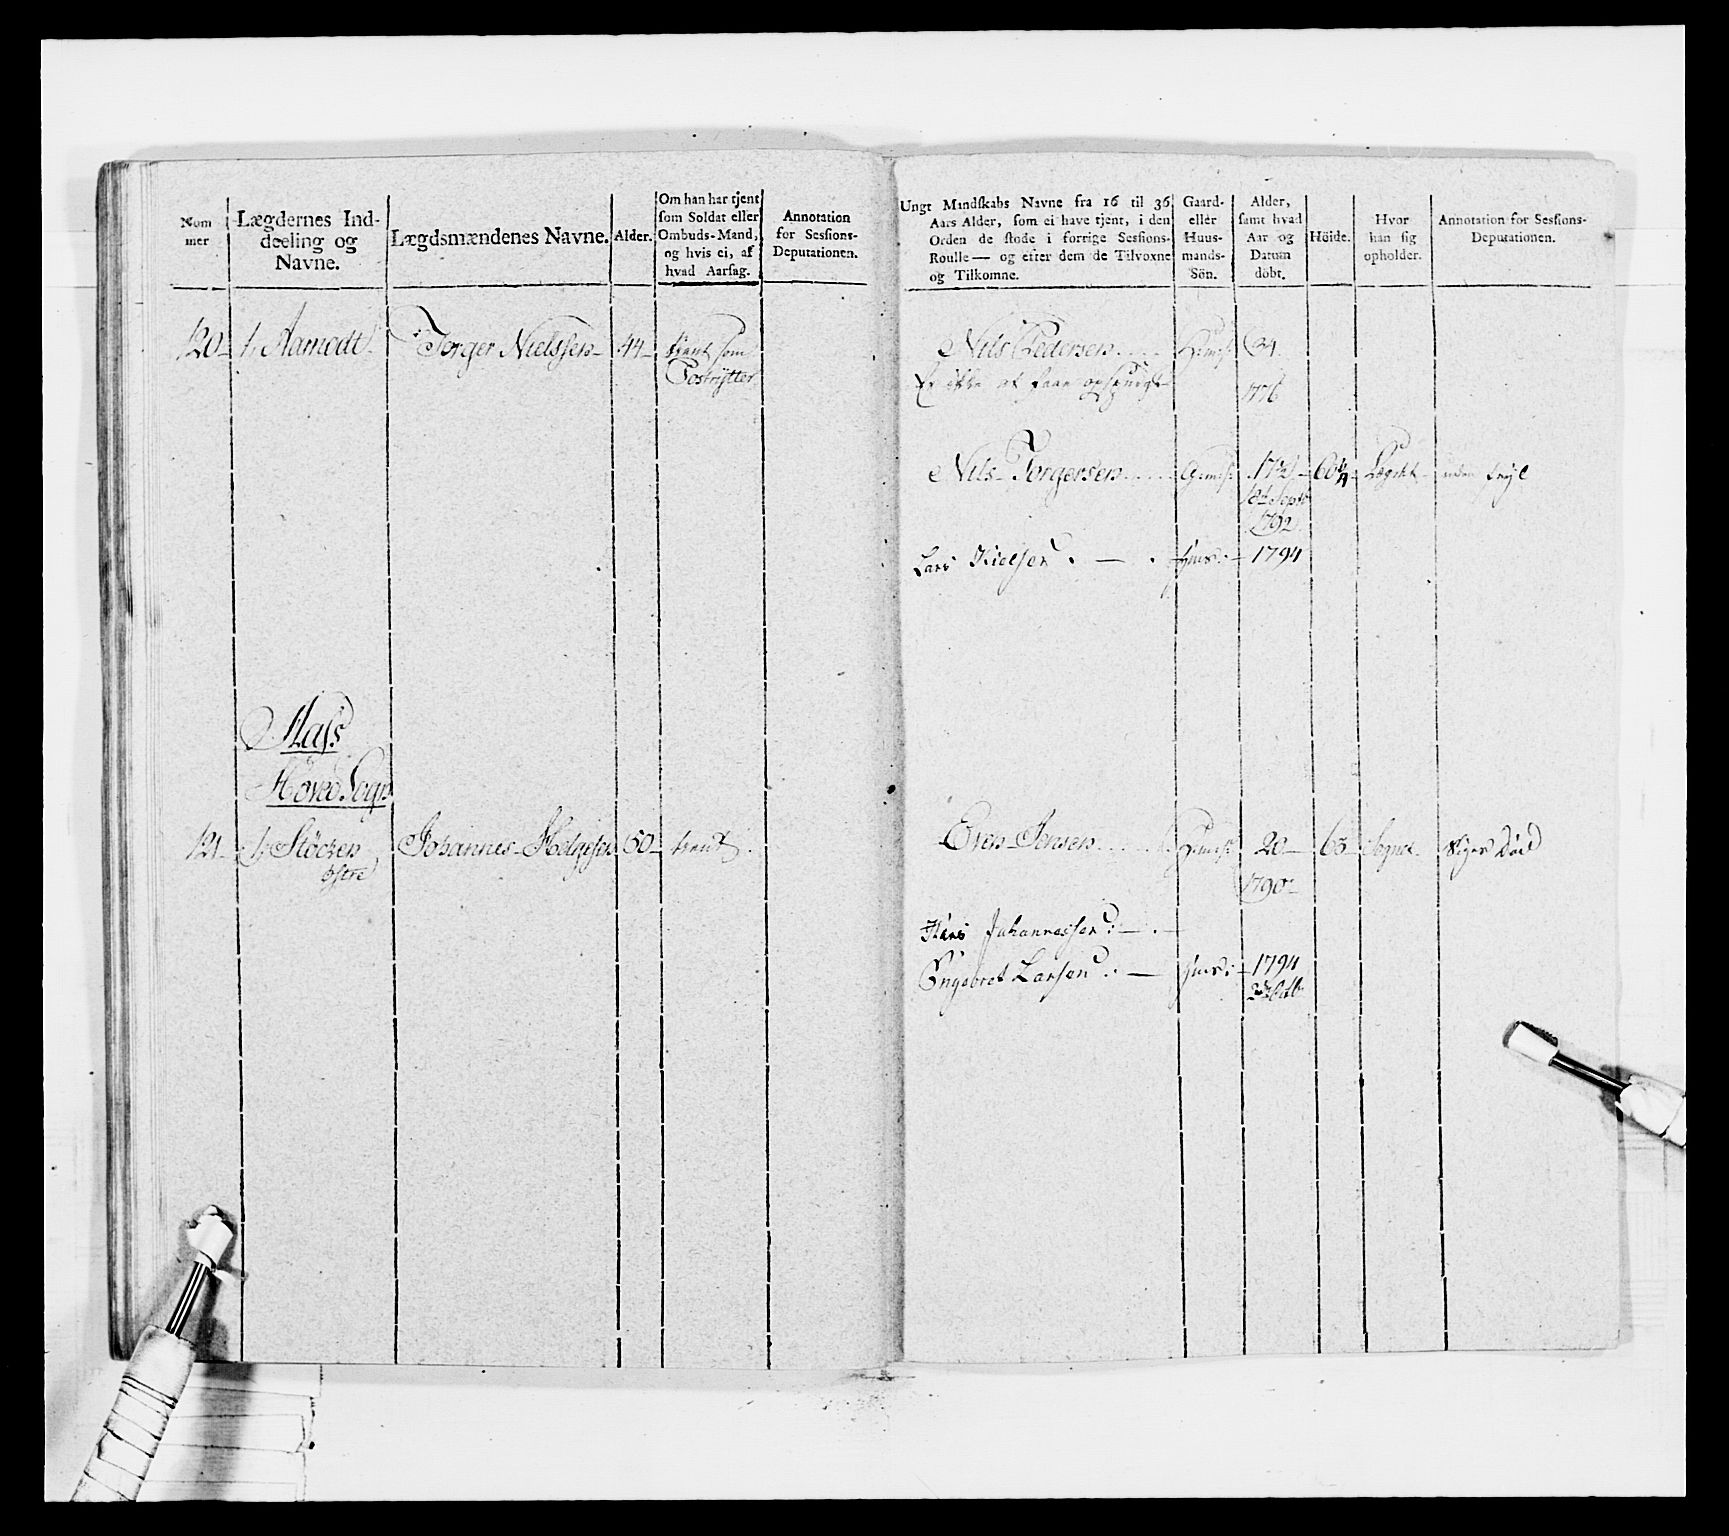 Nom
mer
Lægdernes Ind-
deeling og
Navne.
Lægdsmændenes Navne.
Alder.
Om han har tjent
som Soldat eller
Ombuds-Mand,
og hvis ei, af
hvad Aarsag.
Annotation
for Sessions-
Deputationen.
120 1, Aamodt Torger Nielssen 44 tient som
Postrÿtter
Stass
Hoved Sogn
121 1, Stöcken Johannes Helgesen 60 tient
östre
Ungt Mandskabs Navne fra 16 til 36
Aars Alder, som ei have tjent, i den
Orden de stode i forrige Sessions-
Roulle — og efter dem de Tilvoxne
og Tilkomne.
Gaard-
eller
Huus-
mands-
Sön.
Alder,
samt hvad
Aar og
Datum
döbt.
Höide.
Hvor
han sig
opholder.
Annotation for Sessions-
Deputationen.
Nils Pedersen 34
Er ikke at faae
1776
Nils Torgersen 17 60¼ Lægdet
18de Septr
1792
Lars Nielsen 1794
Even Jensen 20 65 Sognet siges Död
1790
Hans Johannessen
Engebret Larsen 1794